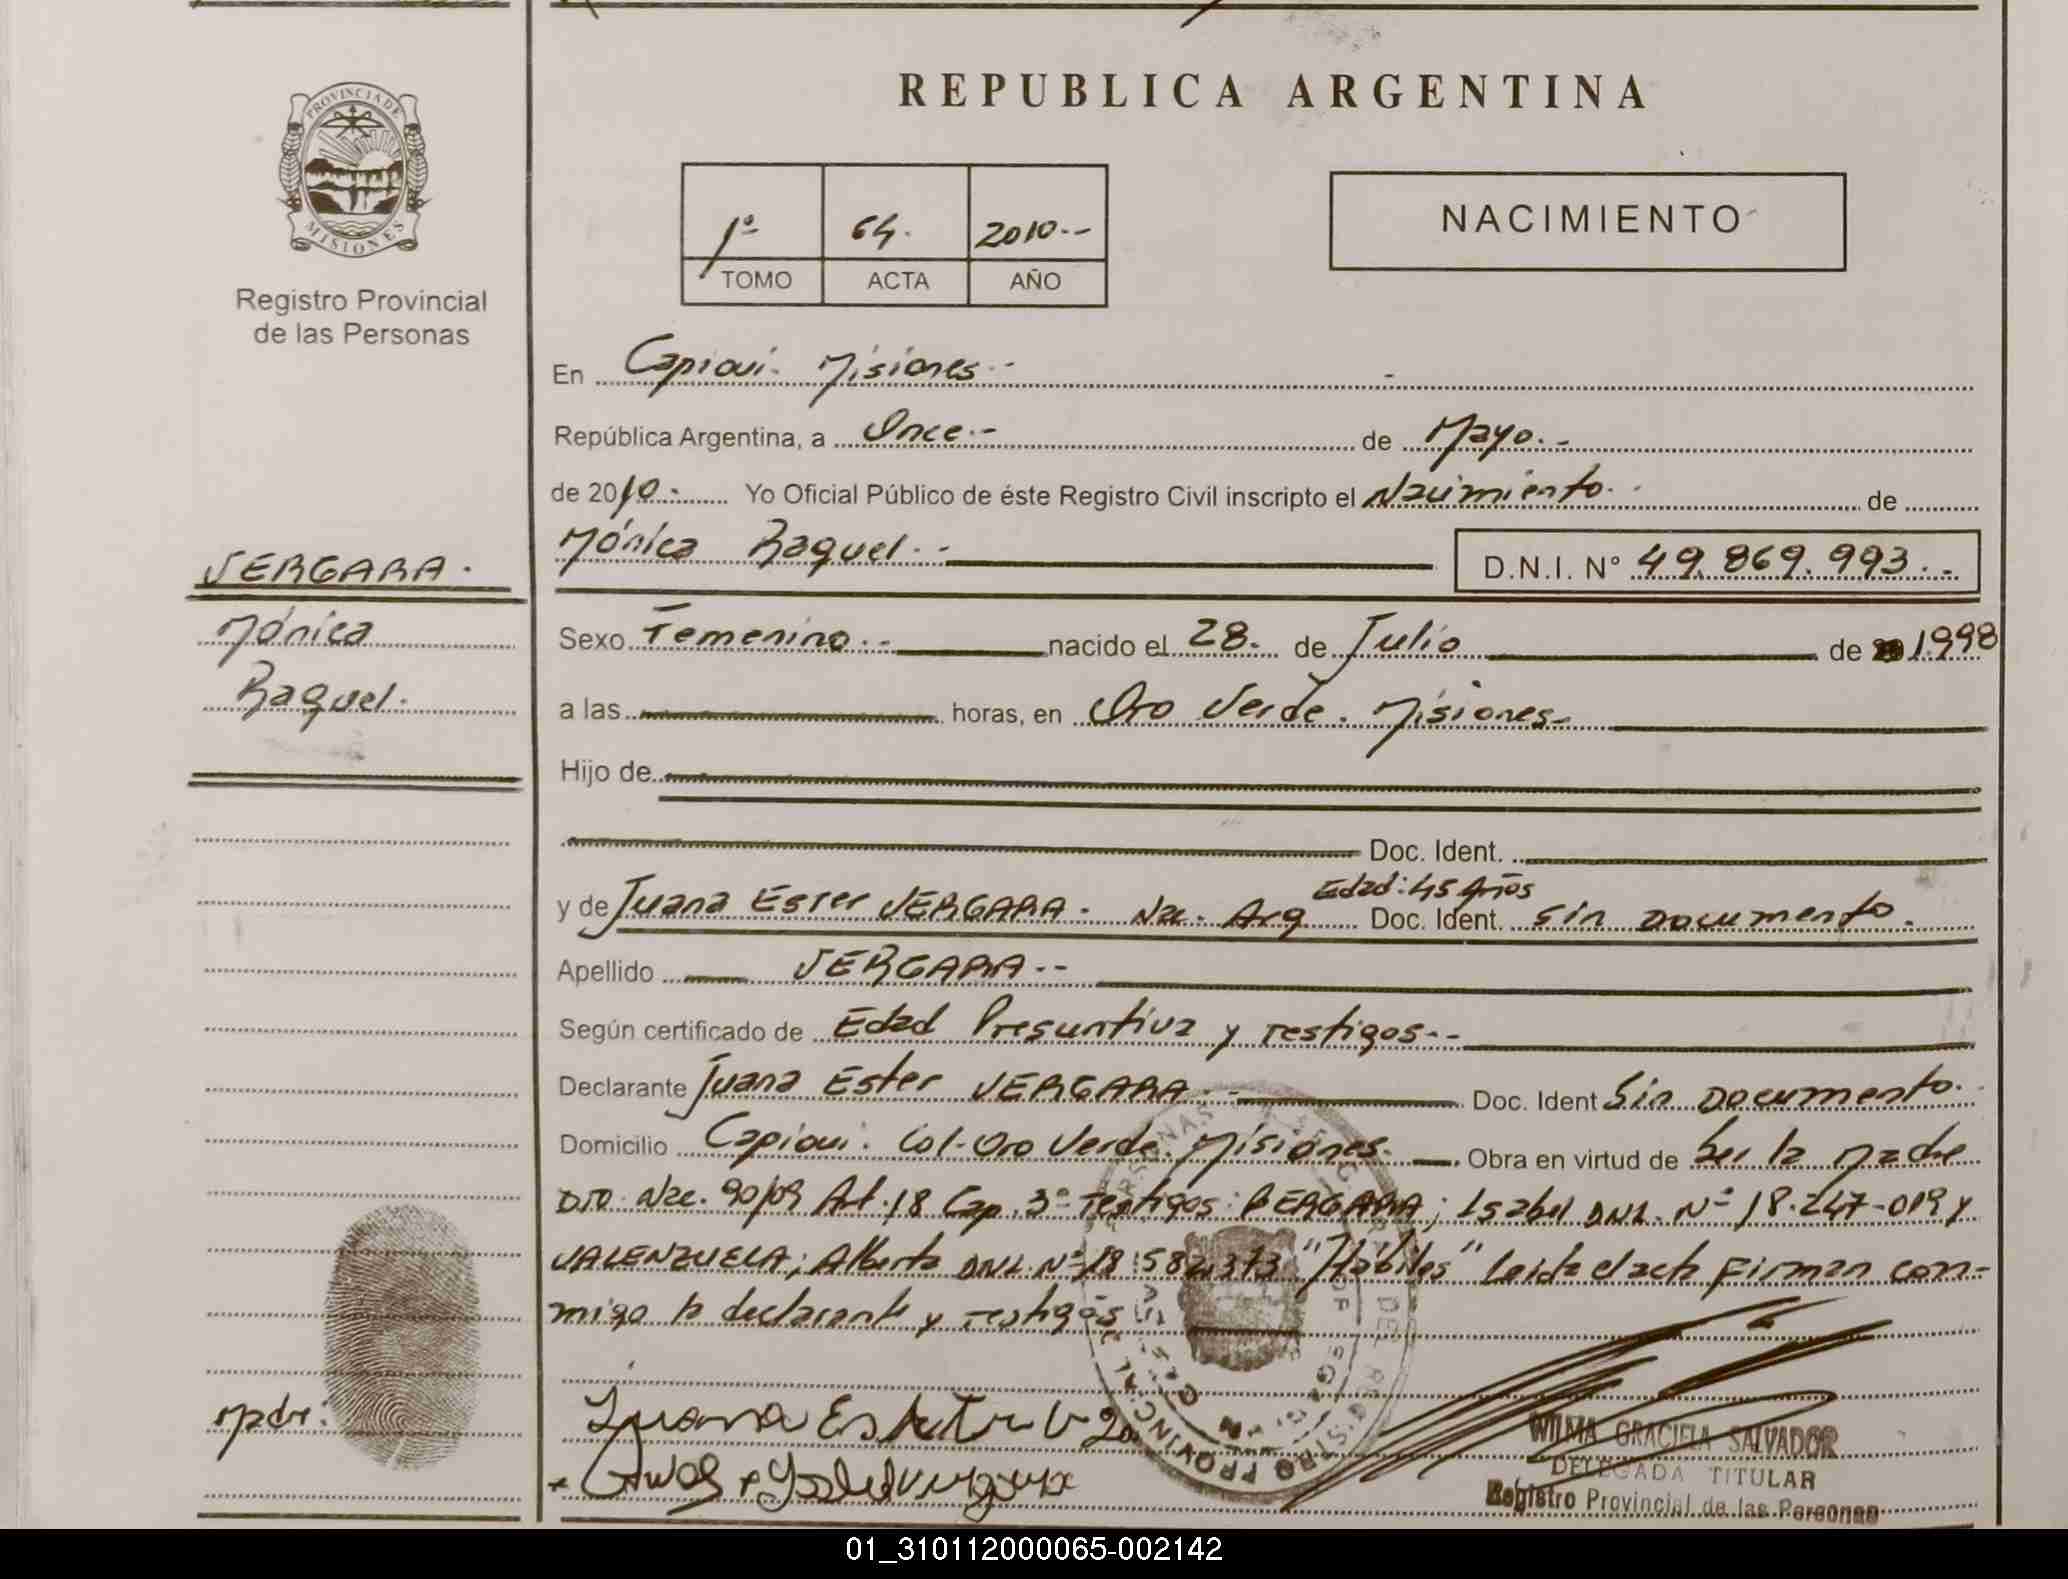 REPUBLICA ARGENTINA
PROVINCIA DE
MISIONES
Registro Provincial
de las Personas
1º 64. 2010.-
TOMO ACTA AÑO
NACIMIENTO
En Capioui. Misiones.-
República Argentina, a Once.- de Mayo.-
de 2010.- Yo Oficial Público de éste Registro Civil inscripto el Nacimiento. de
Mónica Raquel.- D.N.I. Nº 49.869.993.-
VERGARA.
Mónica
Raquel.
Sexo Femenino.- nacido el 28. de Julio de 1998
a las horas, en Oro Verde. Misiones.-
Hijo de
Doc. Ident.
Edad: 45 Años
y de Juana Ester VERGARA. Nac. Arg Doc. Ident. Sin Documento.
Apellido VERGARA.-
Según certificado de Edad Presuntiva y Testigos.-
Declarante Juana Ester VERGARA.- Doc. Ident Sin Documento.
Domicilio Capioui. Col. Oro Verde. Misiones. Obra en virtud de Ser la Madre
DTO. Nac. 90/09 Art. 18 Cap. 3º Testigos: BERGARA; Isabel DNI. Nº 18.247-019 y
VALENZUELA; Alberto DNI. Nº 18.582.373 "Hábiles" Leida el acta Firman con-
migo la declarante y Testigos
Madre:
Juana Ester
WILMA GRACIELA SALVADOR
DELEGADA TITULAR
Registro Provincial de las Personas
01_310112000065-002142